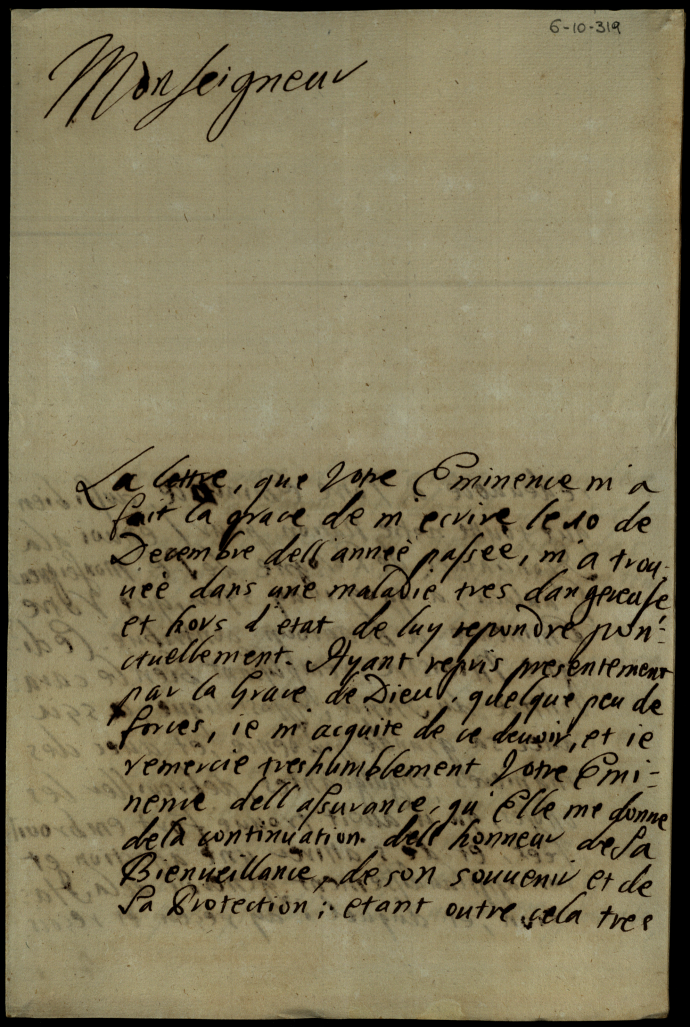 6-10-319
Monseigneur
La lettre, que Votre Eminence m'a
fait la grace de m'ecrire le 10 de
Decembre dell'anneè passeè, m'a trou-
ueè dans une maladie tres dangereuse
et hors d'etat de luy repondre pon-
ctuellement. Ayant repris presentement
par la Grace de Dieu, quelque peu de
forces, ie m'acquite de ce deuoir, et ie
remercie treshumblement Votre Emi-
nence dell'assurance, qu'Elle me donne
de la continuation dell'honneur de Sa
Bienueillance, de son souuenir et de
Sa Protection; etant outre cela tres